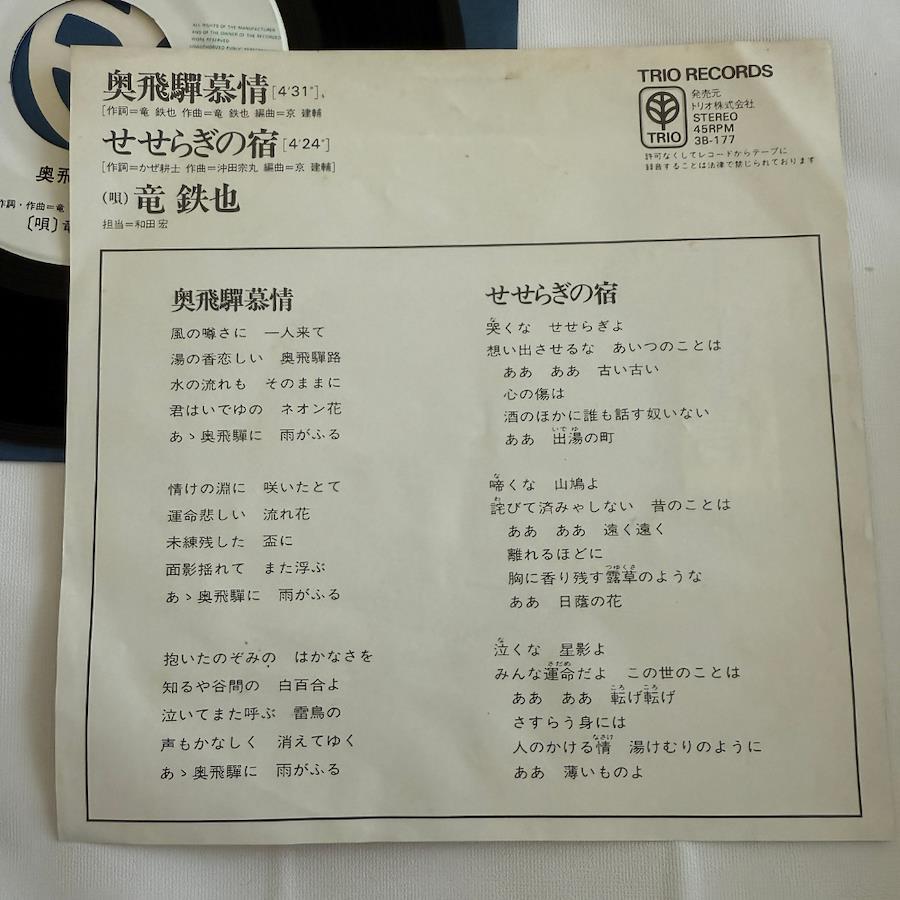 ALL RIGHTS OF THE MANUFACTURER
AND OF THE OWNER OF THE RECORDED
WORK RESERVED
奥飛
作詞・作曲=竜
〔唄〕竜
奥飛驒慕情[4'31"]
[作詞=竜 鉄也 作曲=竜 鉄也 編曲=京 建輔]
せせらぎの宿[4'24"]
[作詞=かぜ耕士 作曲=沖田宗丸 編曲=京 建輔]
(唄) 竜 鉄也
担当=和田 宏
TRIO RECORDS
TRIO
発売元
トリオ株式会社
STEREO
45RPM
3B-177
許可なくしてレコードからテープに
録音することは法律で禁じられております
奥飛驒慕情
風の噂さに 一人来て
湯の香恋しい 奥飛驒路
水の流れも そのままに
君はいでゆの ネオン花
あゝ奥飛驒に 雨がふる
情けの淵に 咲いたとて
運命悲しい 流れ花
未練残した 盃に
面影揺れて また浮ぶ
あゝ奥飛驒に 雨がふる
抱いたのぞみの はかなさを
知るや谷間の 白百合よ
泣いてまた呼ぶ 雷鳥の
声もかなしく 消えてゆく
あゝ奥飛驒に 雨がふる
せせらぎの宿
な
哭くな せせらぎよ
想い出させるな あいつのことは
ああ ああ 古い古い
心の傷は
酒のほかに誰も話す奴いない
いでゆ
ああ 出湯の町
な
啼くな 山鳩よ
わ
詫びて済みゃしない 昔のことは
ああ ああ 遠く遠く
離れるほどに
つゆくさ
胸に香り残す露草のような
ああ 日蔭の花
な
泣くな 星影よ
さだめ
みんな運命だよ この世のことは
ころ ころ
ああ ああ 転げ転げ
さすらう身には
なさけ
人のかける情 湯けむりのように
ああ 薄いものよ